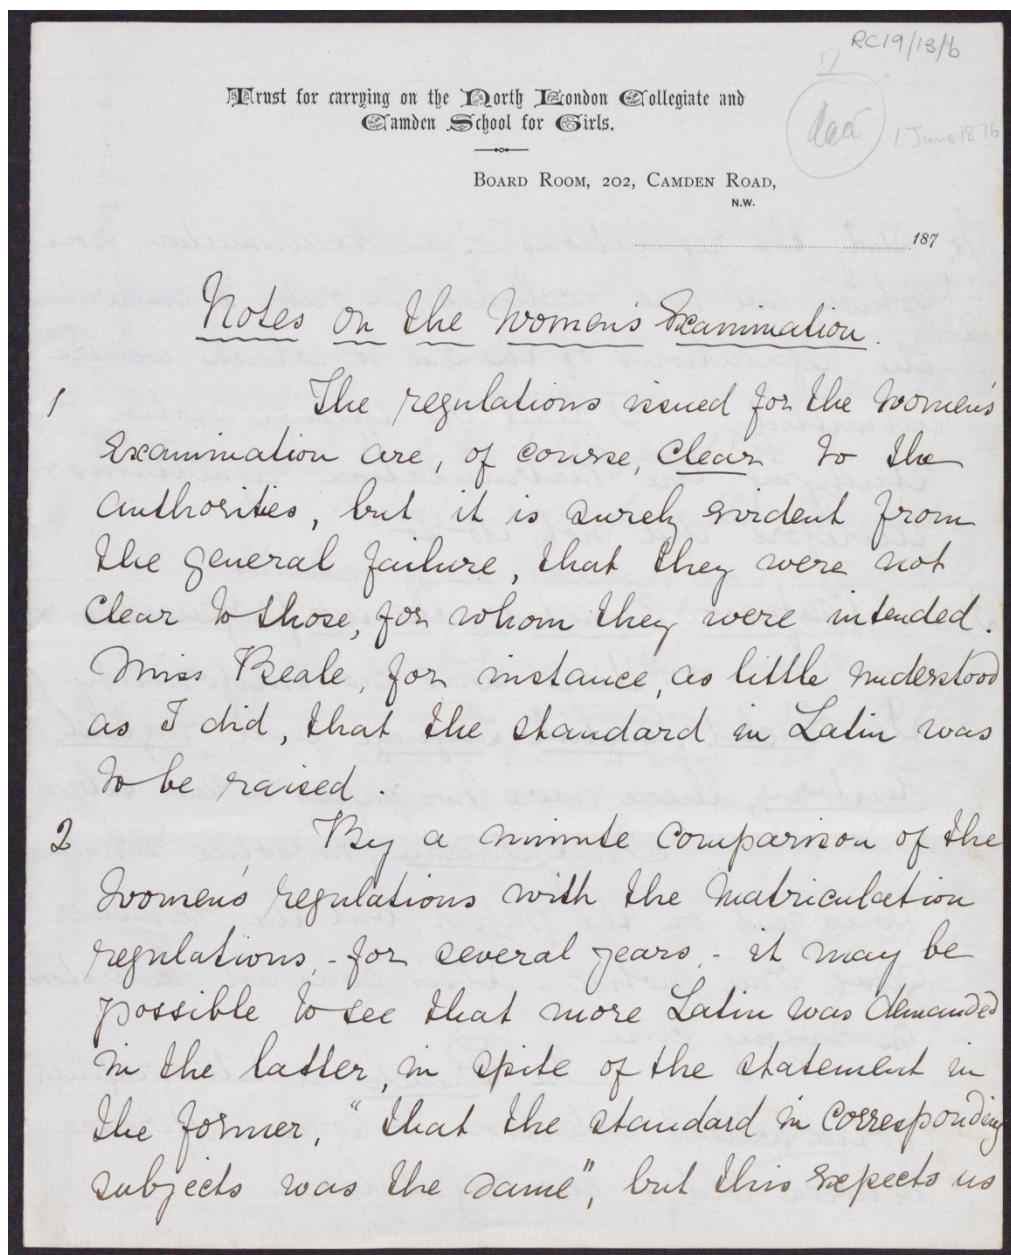 RC19/13/6
Trust for carrying on the North London Collegiate and
Camden School for Girls.
1 June 1876
BOARD ROOM, 202, CAMDEN ROAD,
N.W.
187
Notes on the Women's Examination.
1 The regulations issued for the Women's
Examination are, of course, clear to the
authorities, but it is surely evident from
the general failure, that they were not
clear to those, for whom they were intended.
Miss Beale, for instance, as little understood
as I did, that the standard in Latin was
to be raised.
2 By a minute comparison of the
Women's regulations with the Matriculation
regulations, - for several years, - it may be
possible to see that more Latin was demanded
in the latter, in spite of the statement in
the former, "that the standard in corresponding
subjects was the same", but this expects us